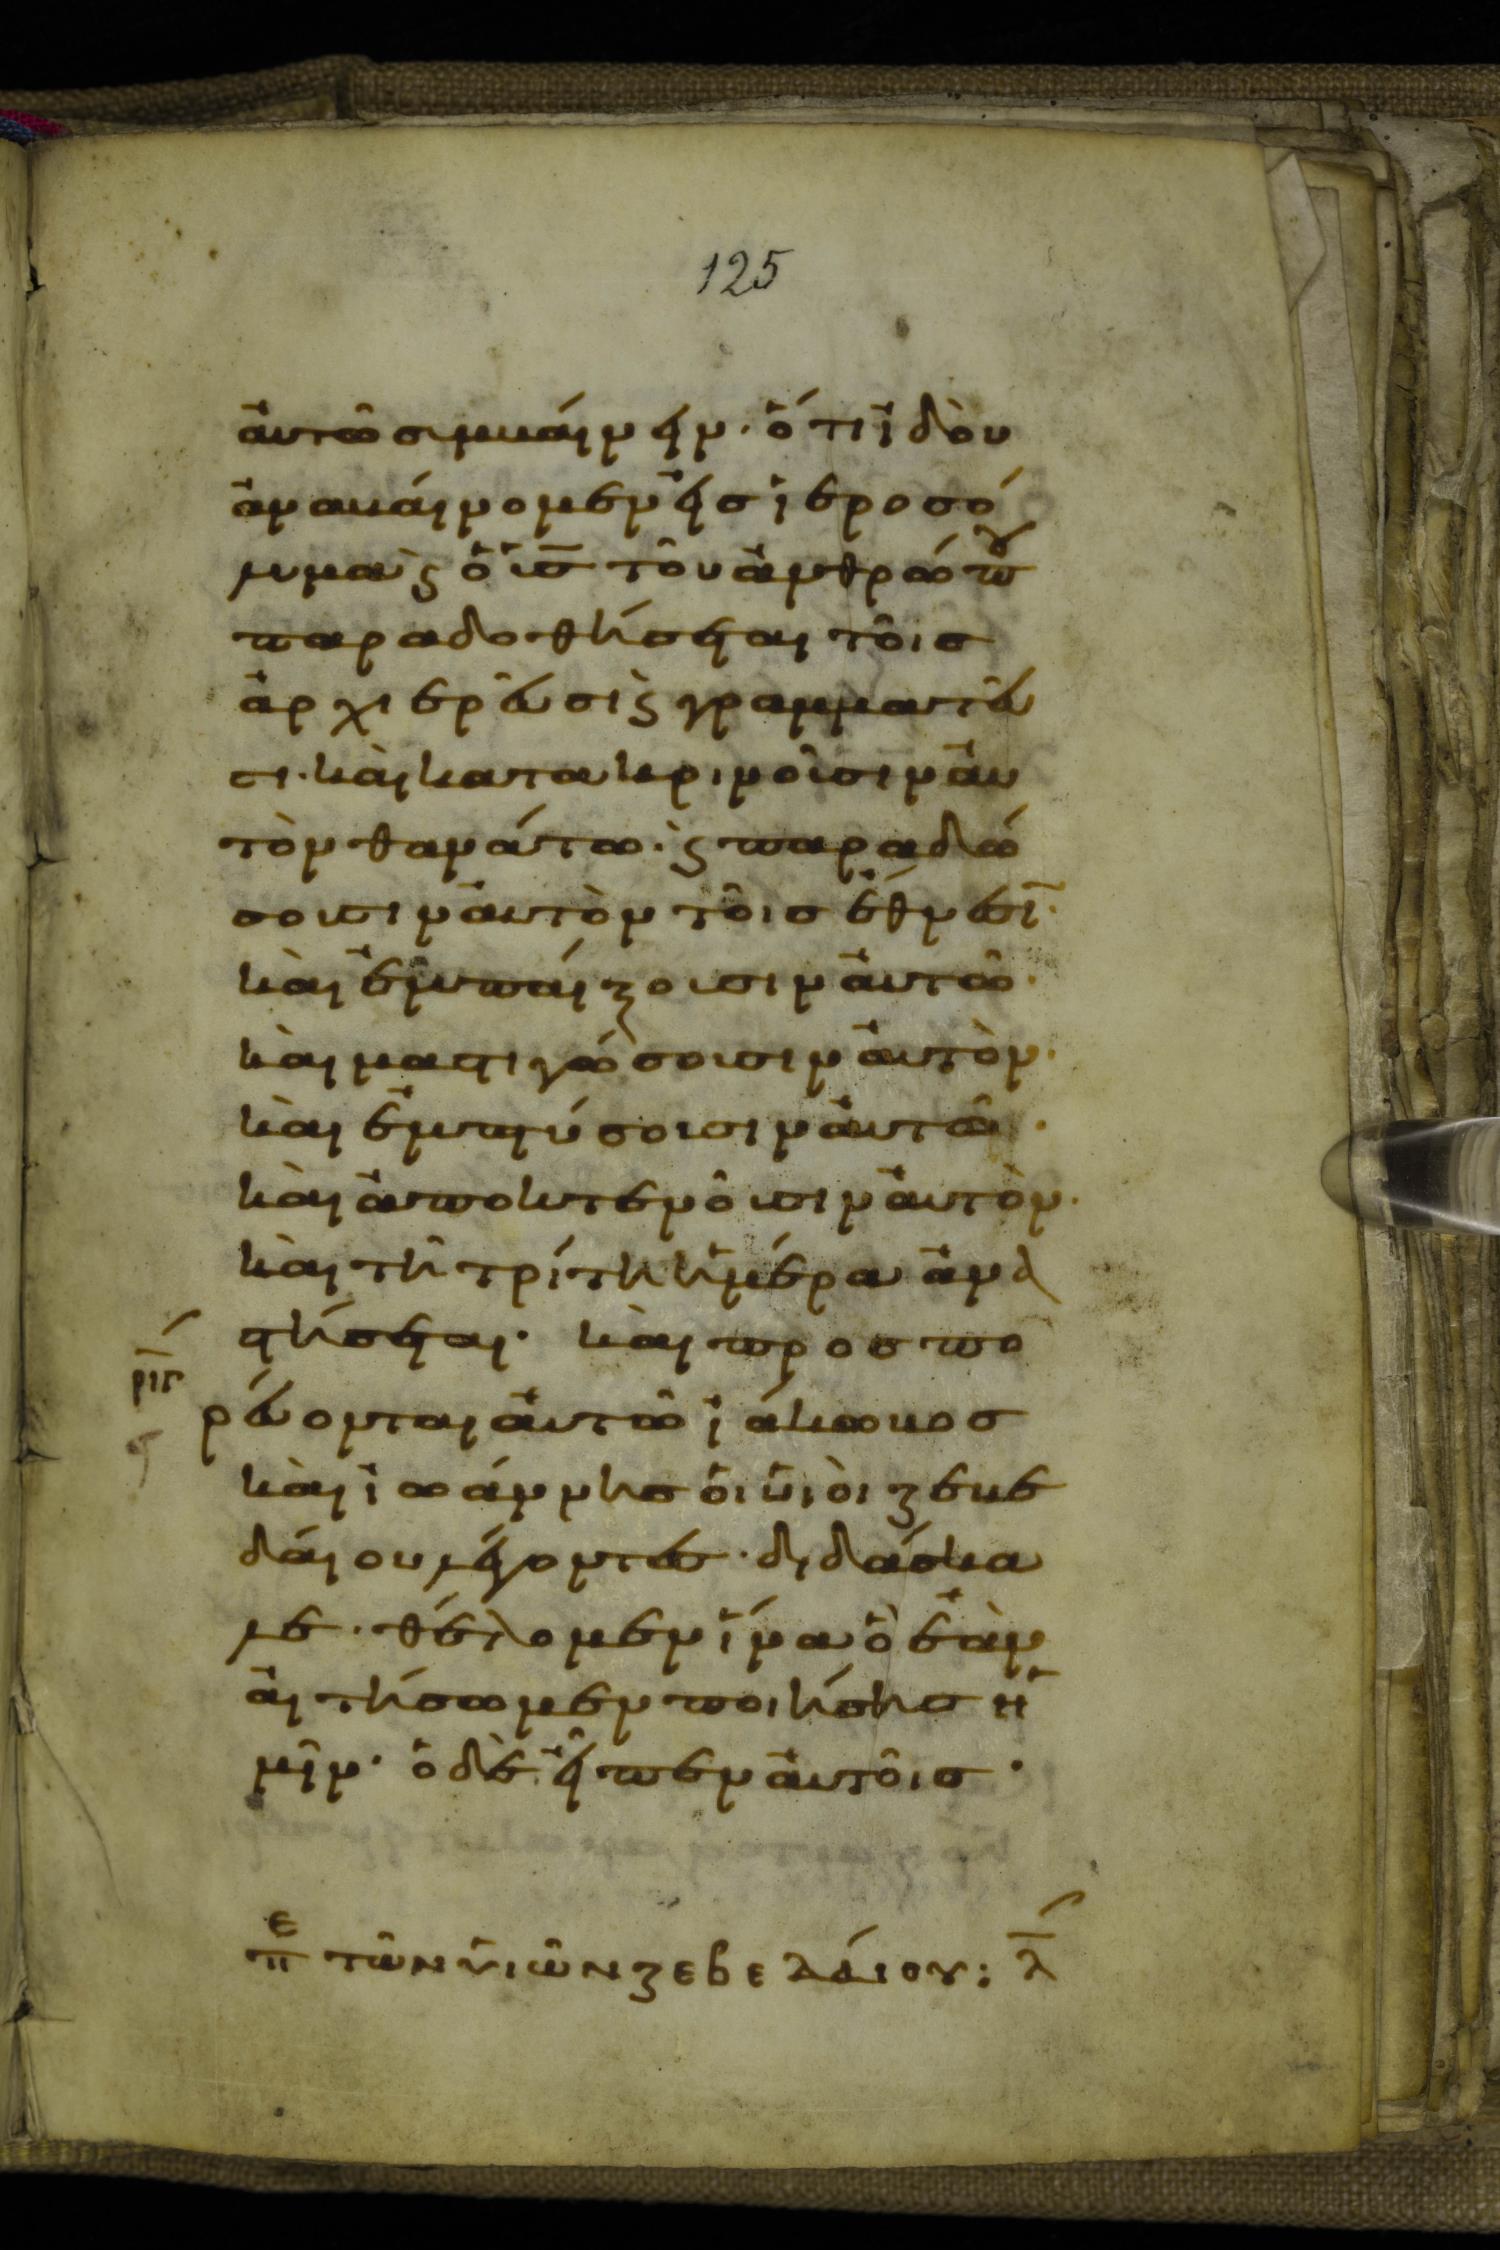 125
ἀυτῶ συμβάινειν· ὅτι ἰδὸυ
ἀναβάινομεν ἐις ἱεροσό
λυμα ϗ ὁ υ̅ς̅ τοῦ ἀνθρώπου
παραδοθήσεται τοῖς
ἀρχιερεῦσι ϗ γραμματεῦ
σι· κὰι κατακρινοῦσιν ἀυ
τὸν θανάτω· ϗ παραδώ
σουσιν ἀυτὸν τοῖς ἔθνεσι̅·
κὰι ἐμπάιζουσιν ἀυτῶ·
κὰι μαστιγώσουσιν ἀυτὸν·
κὰι ἐμπτύσουσιν ἀυτῶ·
κὰι ἀποκτενοῦσιν ἀυτὸν·
κὰι τῆ τρίτη ἡμέρα ἀνα
στήσεται· κὰι προσπο
ρ̅ι̅γ̅
ρέυονται ἀυτῶ ἰάκωβος
κὰι ἰωάννης ὁι ὑιὸι ζεβε
δάιου λέγοντες· διδάσκα
λε· θέλομεν ἵνα ὃ ἐὰν
ἀιτήσωμεν ποιήσης ἡ
μῖν· ὁ δὲ ἐῖπεν ἀυτοῖς·
πε τῶν ὑιῶν ζεβεδάιου: λ̅